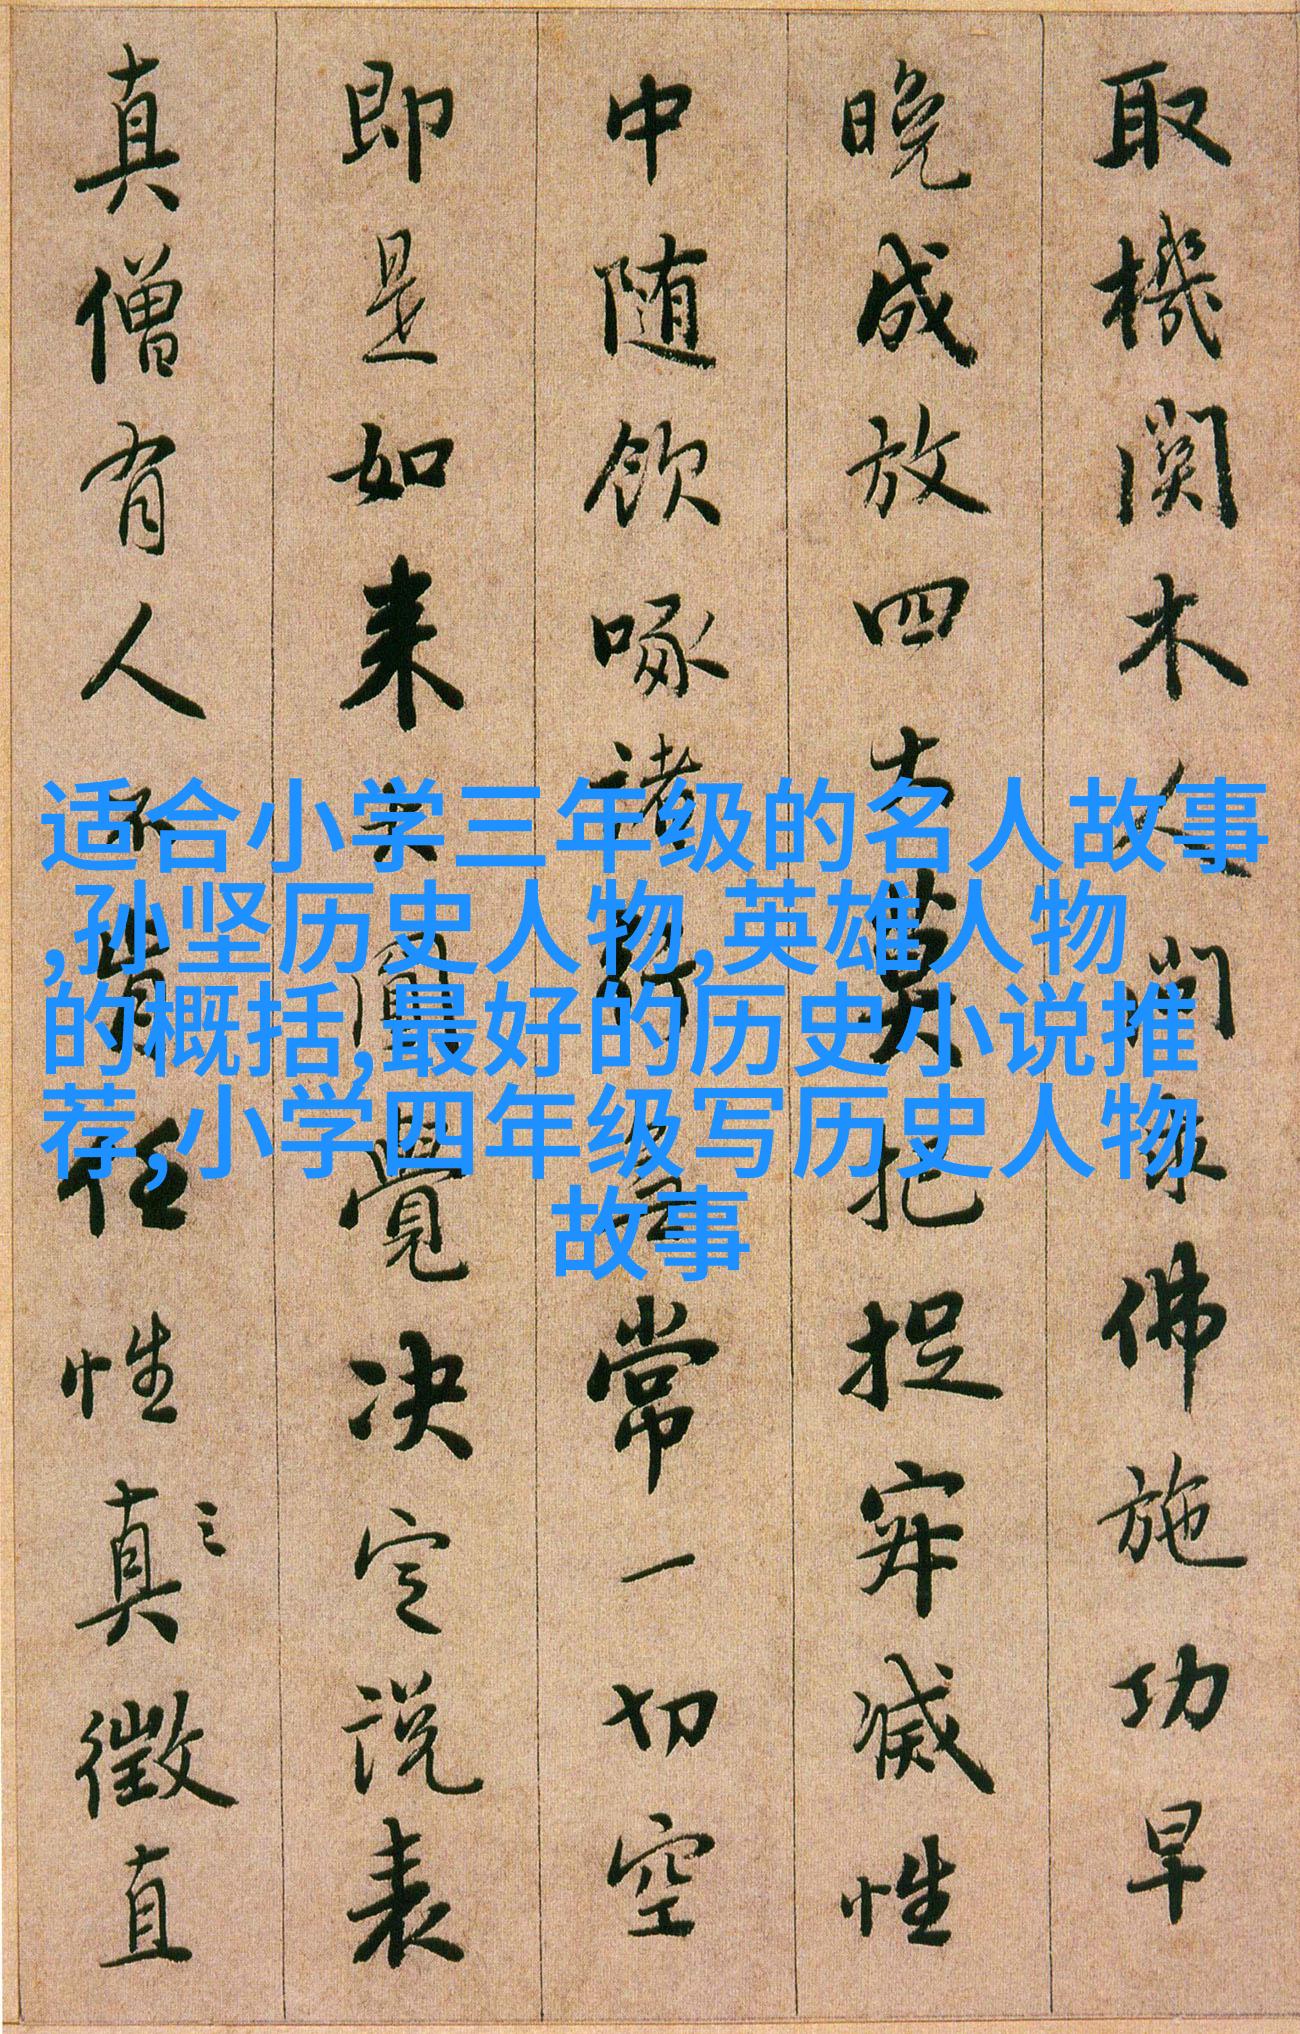 取機関木人問求佛施功早
晚成放四大莫把捉寂滅性
中随飲啄諸行無常一切空
即是如来大圓覺决定説表
真僧有人不肯任性真徵直
适合小学三年级的名人故事
,孙坚历史人物,英雄人物
的概括,最好的历史小说推
荐,小学四年级写历史人物
故事